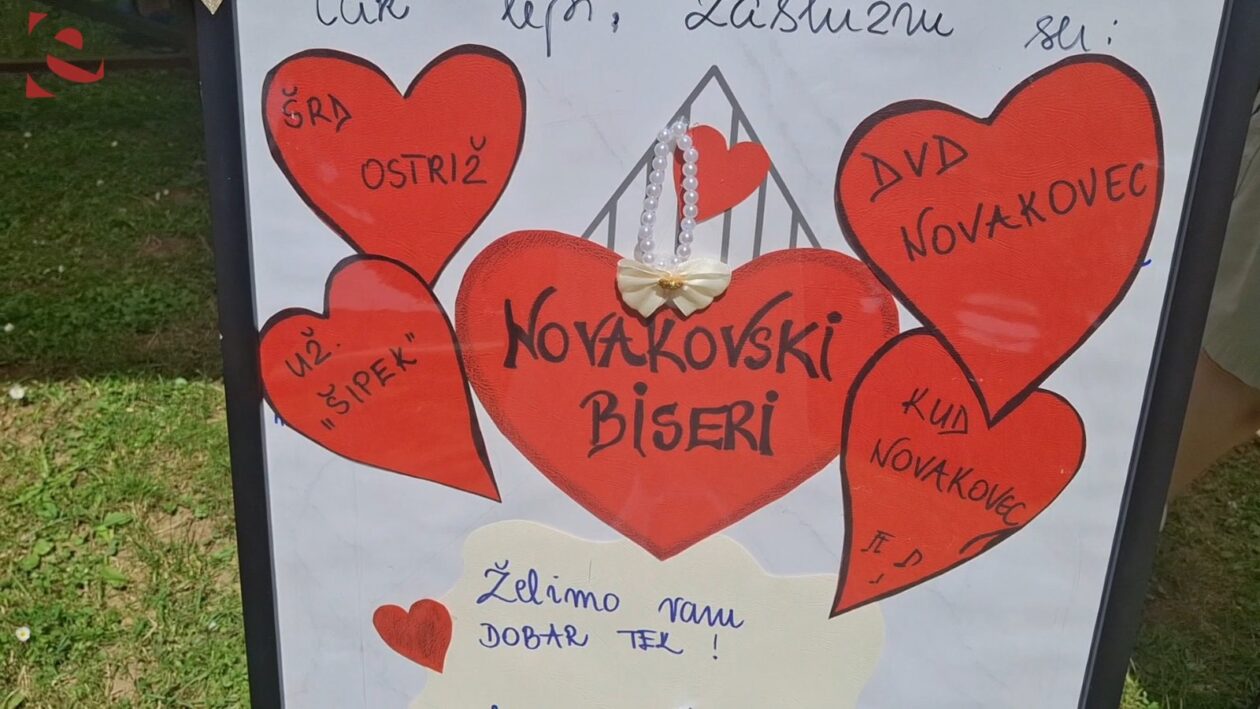 tak lepi, zaslužni su:
ŠRD
OSTRIŽ
DVD
NOVAKOVEC
UŽ.
"ŠIPEK"
NOVAKOVSKI
BISERI
KUD
NOVAKOVEC
Želimo vam
DOBAR TEK !